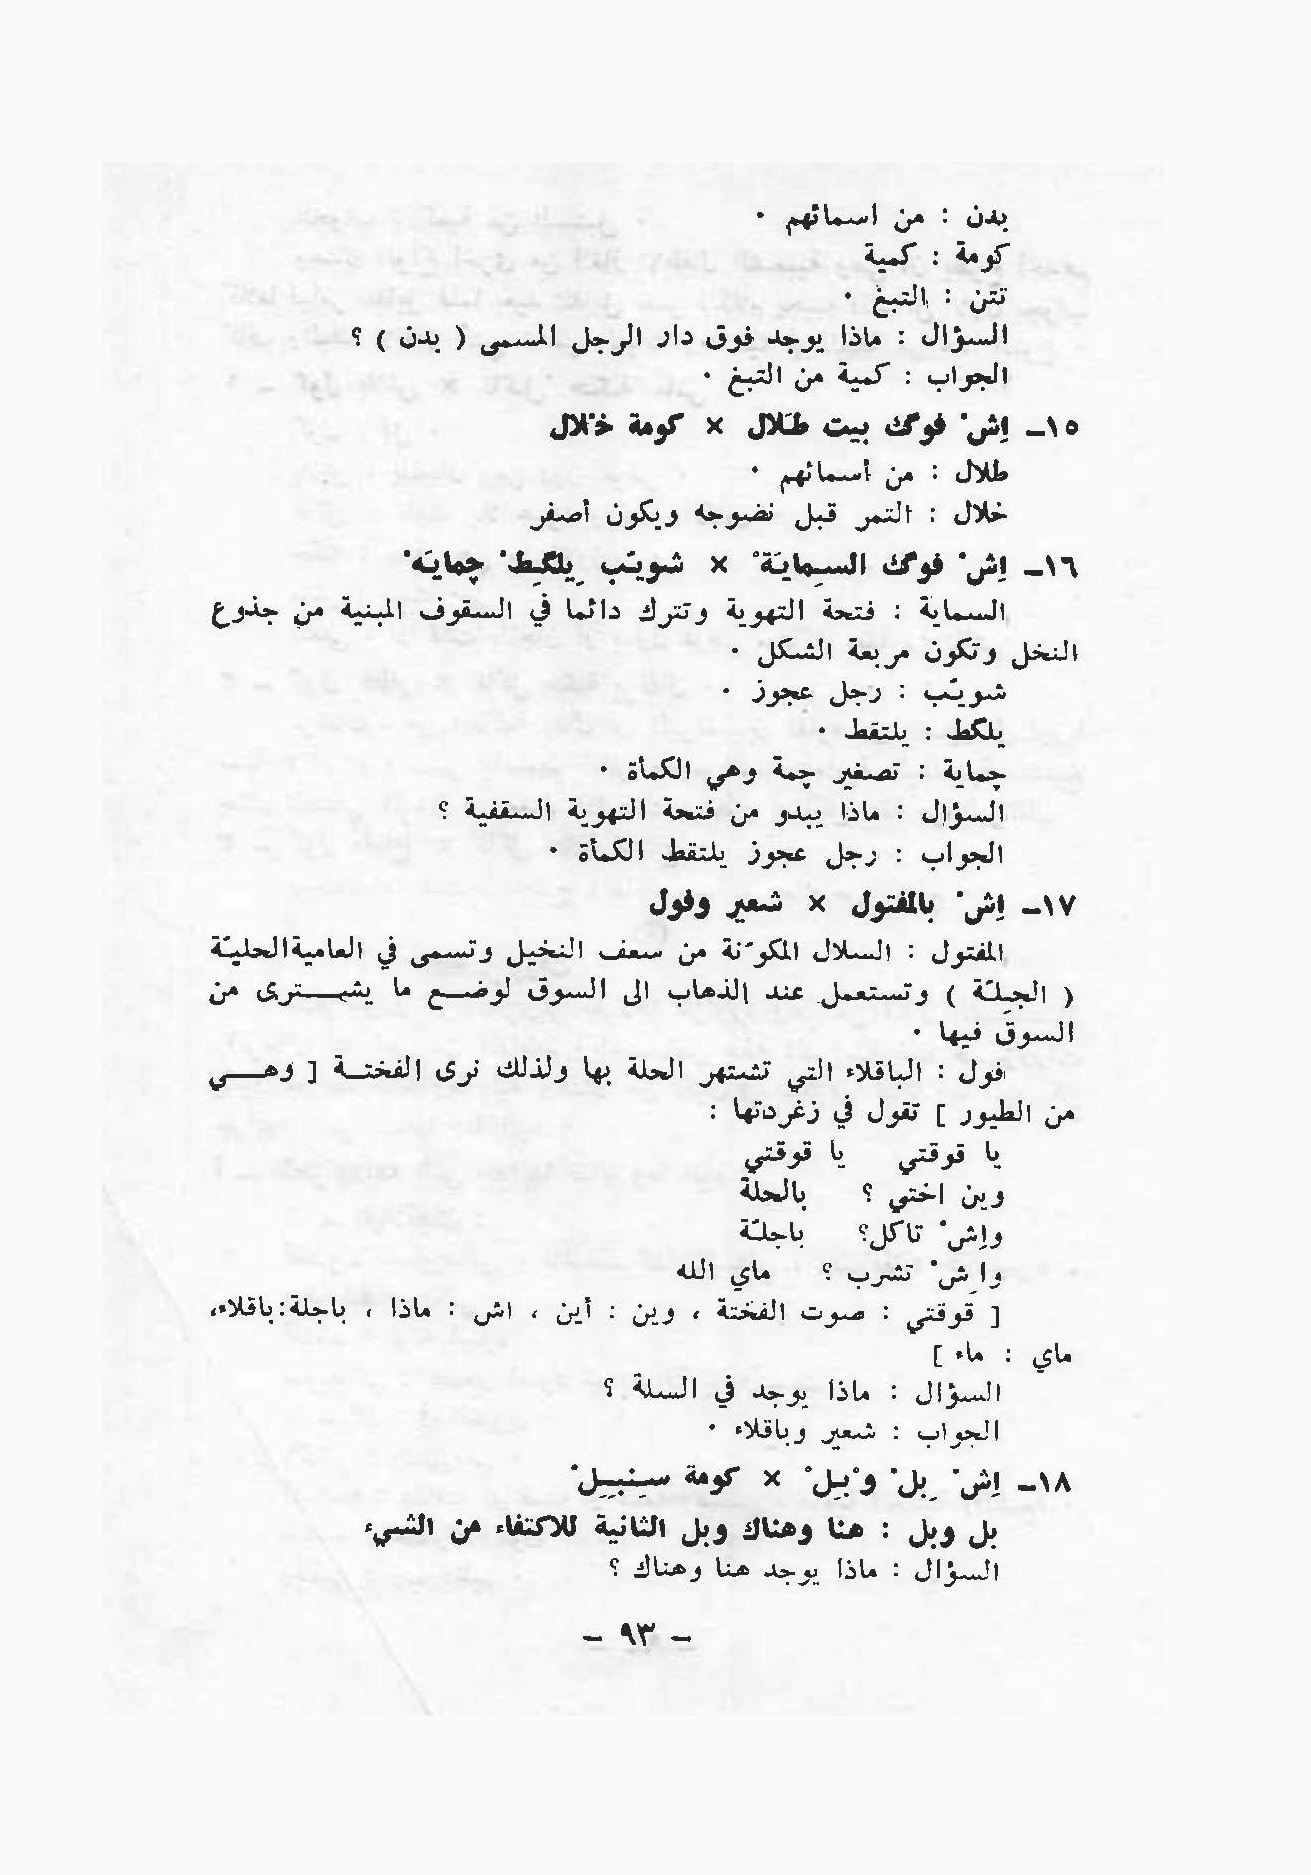 بدن : من اسمائهم ·
كومة : كمية
تتن : التبغ ·
السؤال : ماذا يوجد فوق دار الرجل المسمى ( بدن ) ؟
الجواب : كمية من التبغ ·
١٥ــ اِشْ فوگ بيت طَلال × كومة خْلال
طلال : من أسمائهم ·
خلال : التمر قبل نضوجه ويكون أصفر
١٦ــ اِشْ فوگ السِمايَةْ × شويّب يِلگِطْ چمايَهْ
السماية : فتحة التهوية وتترك دائما في السقوف المبنية من جذوع
النخل وتكون مربعة الشكل ·
شويّب : رجل عجوز ·
يلگط : يلتقط ·
چماية : تصغير چمة وهي الكمأة ·
السؤال : ماذا يبدو من فتحة التهوية السقفية ؟
الجواب : رجل عجوز يلتقط الكمأة ·
١٧ــ اِشْ بالمفتول × شعير وفول
المفتول : السلال المكوّنة من سعف النخيل وتسمى في العامية الحليّة
( الجِلّة ) وتستعمل عند الذهاب الى السوق لوضـع ما يشـترى من
السوق فيها ·
فول : الباقلاء التي تشتهر الحلة بها ولذلك نرى الفختـة [ وهـي
من الطيور ] تقول في زغردتها :
يا قوقتي يا قوقتي
وين اختي ؟ بالحلة
واِشْ تاكل؟ باجلّة
واِشْ تشرب ؟ ماي الله
[ قوقتي : صوت الفختة ، وين : أين ، اش : ماذا ، باجلة:باقلاء،
ماي : ماء ]
السؤال : ماذا يوجد في السلة ؟
الجواب : شعير وباقلاء ·
١٨ــ اِشْ بِلْ وْبِلْ × كومة سِنِبِيلْ
بل وبل : هنا وهناك وبل الثانية للاكتفاء من الشيء
السؤال : ماذا يوجد هنا وهناك ؟
– ٩٣ –